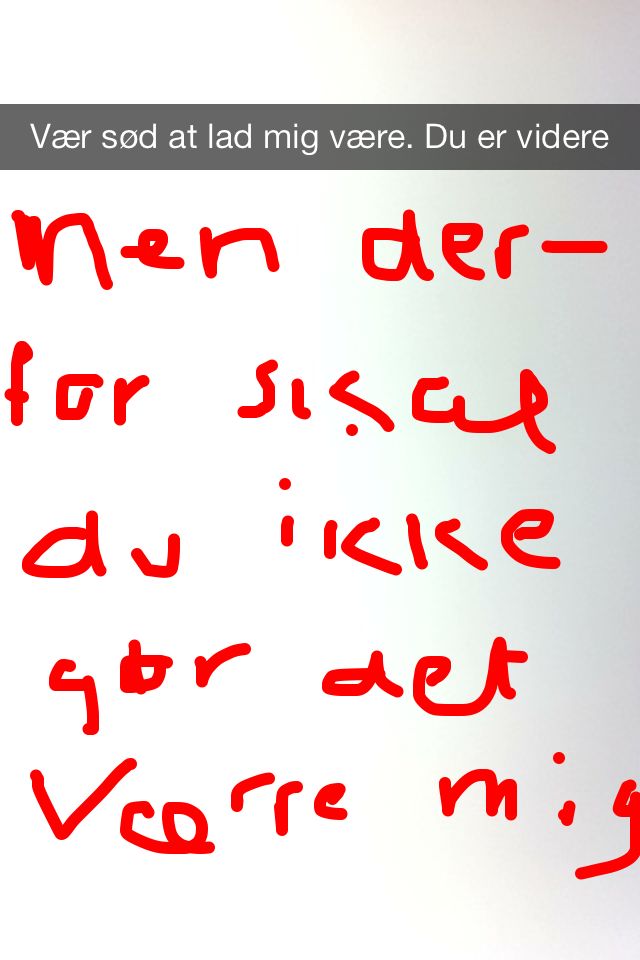 Vær sød at lad mig være. Du er videre
men der-
for skal
du ikke
gør det
værre mig